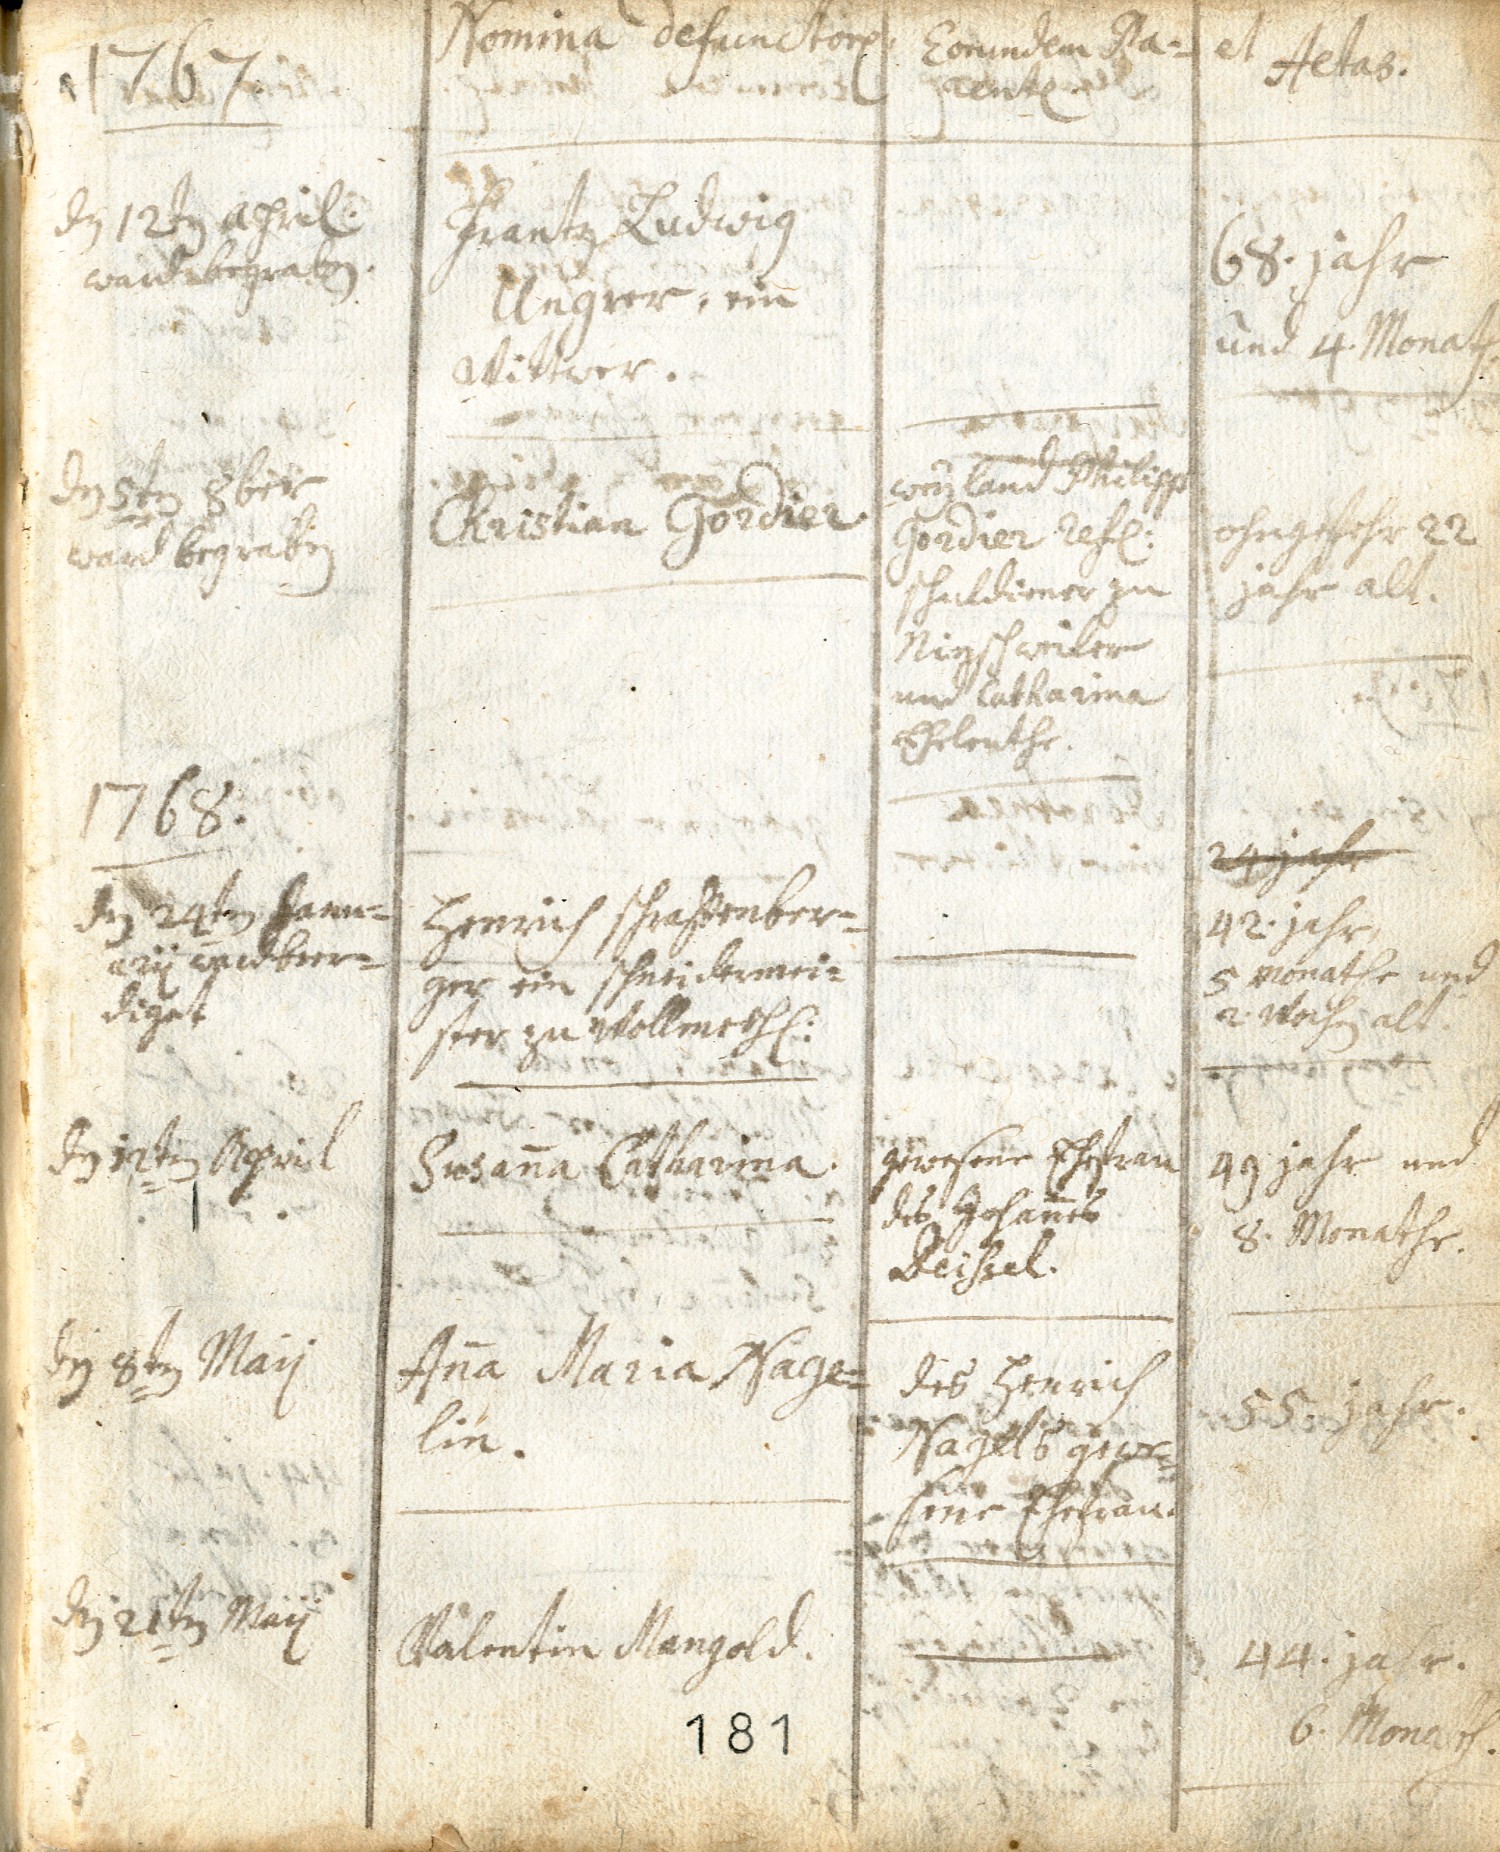 1767.
Nomina defunctor.
Eorundem Pa=
rent.
et Aetas.
den 12ten April.
ward begraben.
Frantz Ludwig
Ungrer, ein
Wittwer.
68. jahr
und 4. Monath
den 5ten 8ber
ward begraben
Christian Gordier.
weyland Philipp
Gordier ref:
schuldiener zu
und Catharina
Eheleuthe.
ohngefehr 22
jahr alt.
1768.
den 24ten Janu=
arij ward beer=
diget
Henrich
ger ein schneidermei=
ster zu
24 jahr
42. jahr,
5 Monathe und
2. Wochen alt.
den 12ten April
Susaña Catharina.
gewesene Ehefrau
des Johañes
Deissel.
49 jahr und
8. Monathe.
den 8ten Maij
Aña Maria Nage=
lin.
des Henrich
Nagels gewe=
sene Ehefrau.
55. jahr.
den 21ten Maij
Valentin Mangold.
44. jahr.
6. Monath.
181